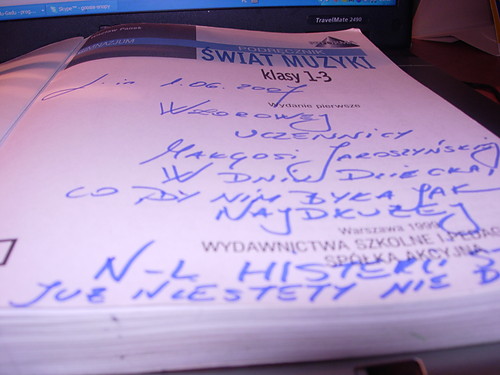 TravelMate 2490
GIMNAZJUM
PODRĘCZNIK
ŚWIAT MUZYKI
klasy 1-3
1.06.2007
Wydanie pierwsze
WZOROWEJ
UCZENNICY
MAŁGOSI JAROSZYŃSKIEJ
W DNIU DZIECKA,
CO BY NIM BYŁA JAK
NAJDŁUŻEJ
Warszawa 1999
WYDAWNICTWA SZKOLNE I PEDAG
SPÓŁKA AKCYJNA
N-L HISTERII
JUŻ NIESTETY NIE D